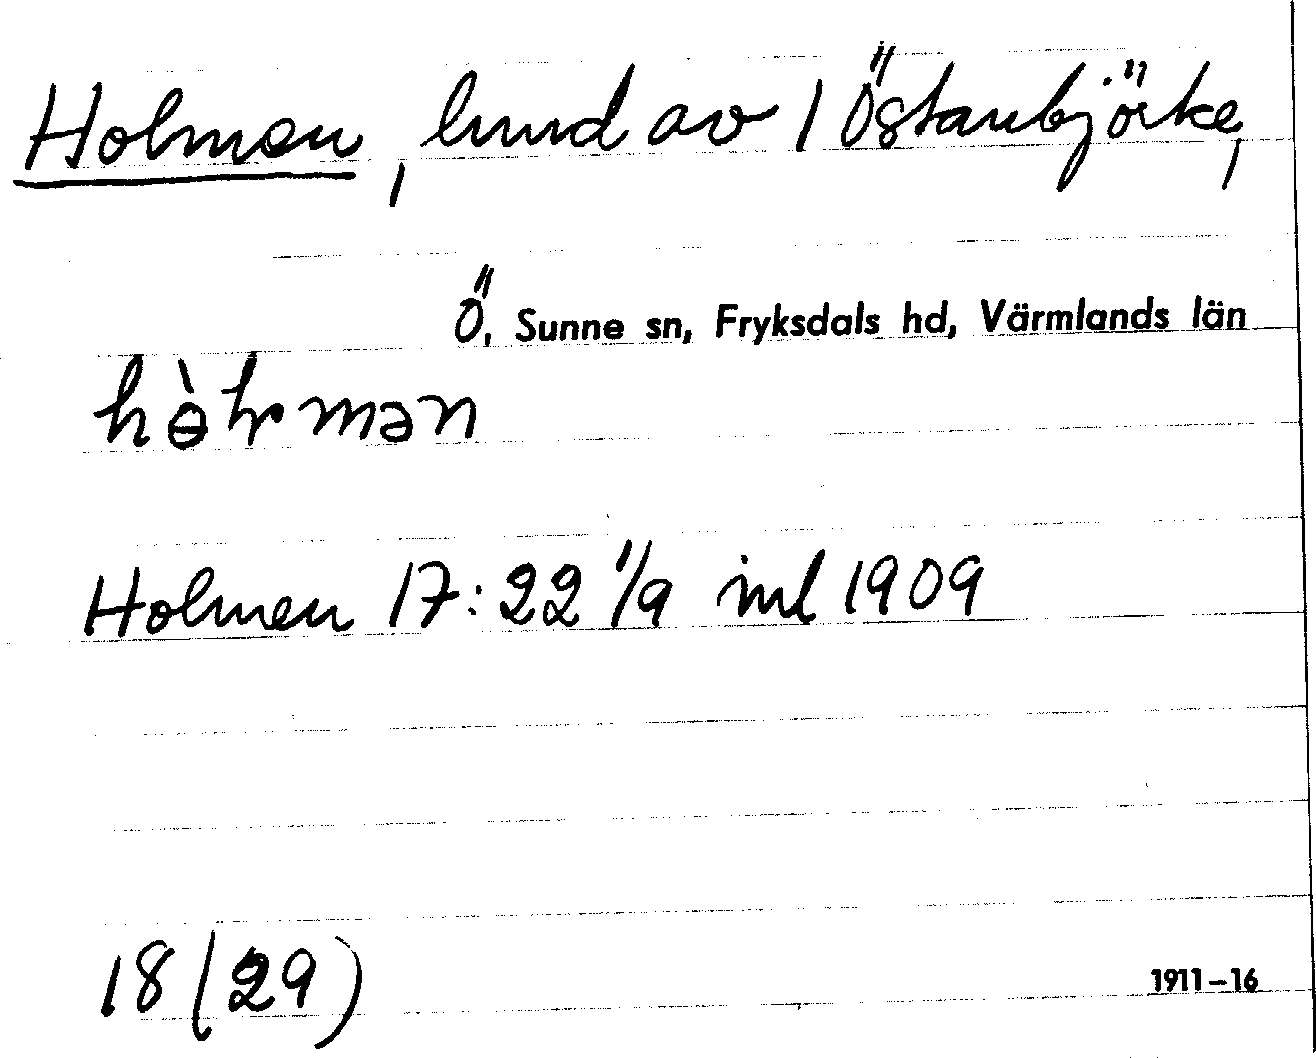 Holmen, hmd av 1 Östanbjörke,
Ö. Sunne sn, Fryksdals hd, Värmlands län
Holmen 17:22 1/9 inl 1909
18 (29)
1911-16